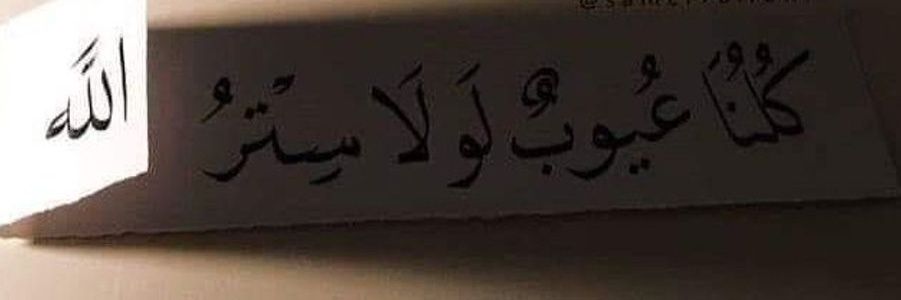 كُلُّنَا عُيُوبٌ لَولَا سِتْرُ اللَّه